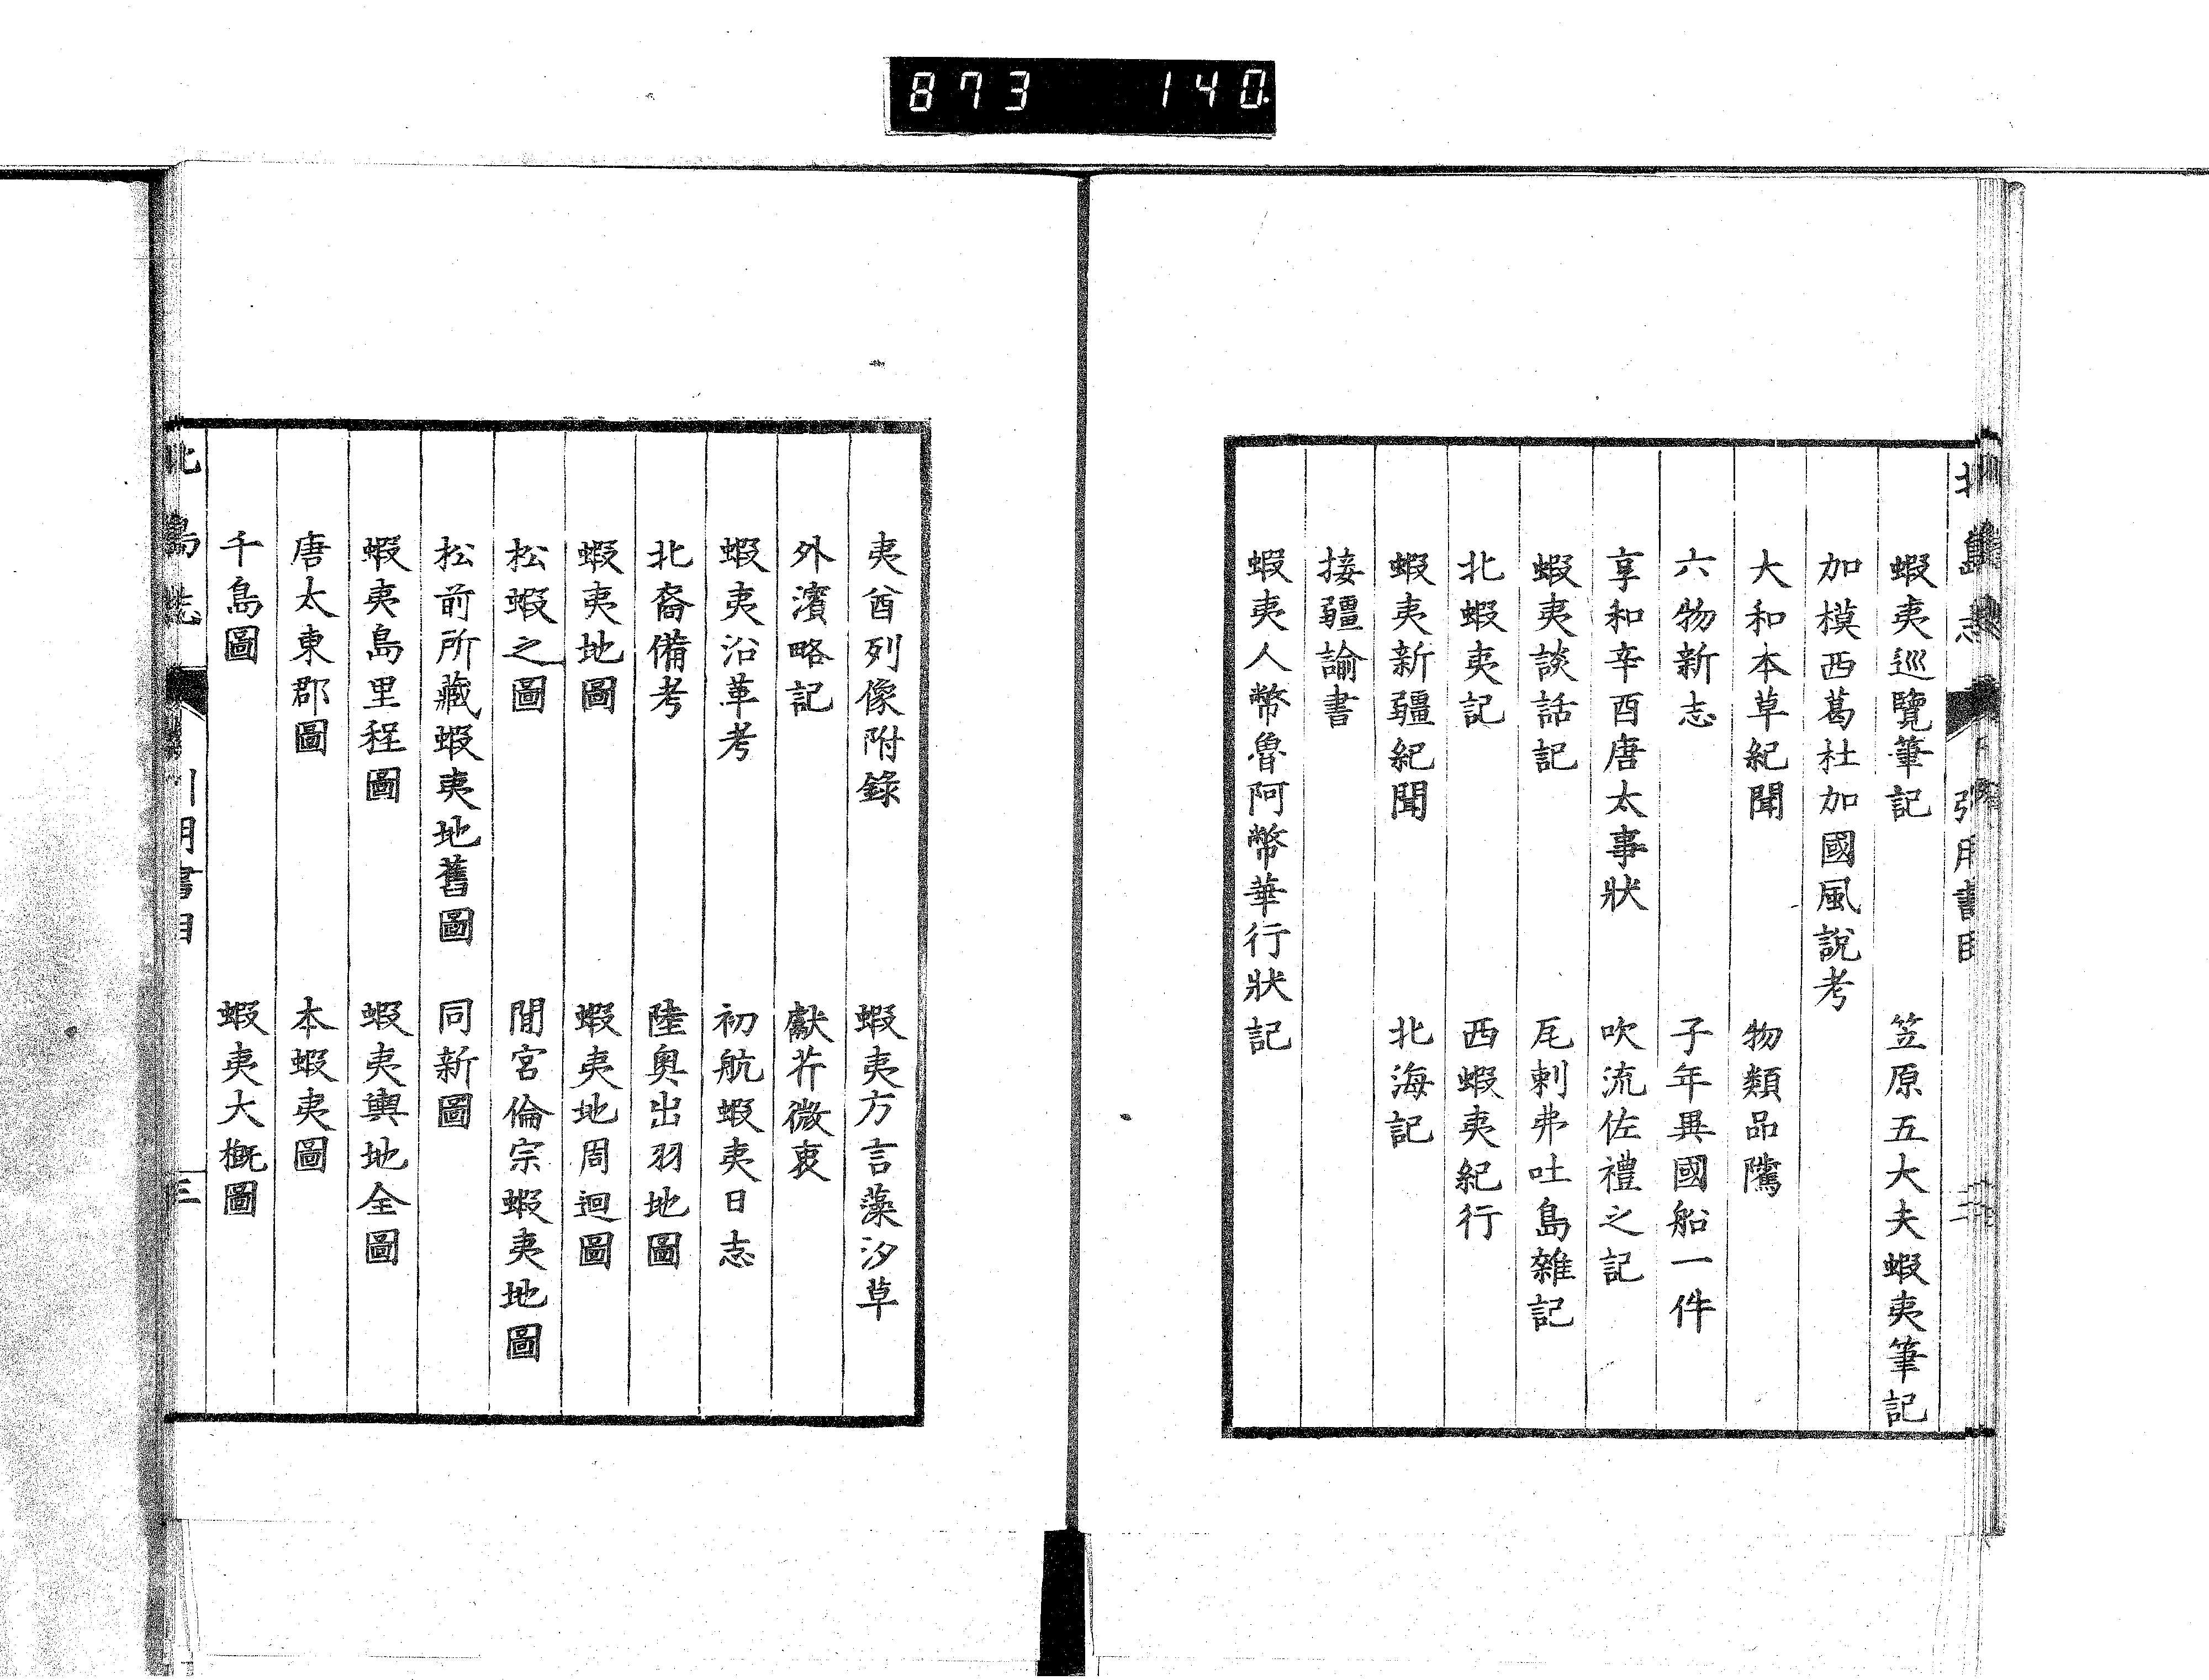 873 140
北島志 引用書目 二
蝦夷巡覽筆記 笠原五大夫蝦夷筆記
加模西葛杜加國風說考
大和本草紀聞 物類品隲
六物新志 子年異國船一件
享和辛酉唐太事狀 吹流佐禮之記
蝦夷談話記 瓦剌弗吐島雜記
北蝦夷記 西蝦夷紀行
蝦夷新疆紀聞 北海記
接疆諭書
蝦夷人幣魯阿幣華行狀記
夷酋列像附錄 蝦夷方言藻汐草
外濱略記 獻芹微衷
蝦夷沿革考 初航蝦夷日志
北裔備考 陸奧出羽地圖
蝦夷地圖 蝦夷地周迴圖
松蝦之圖 間宮倫宗蝦夷地圖
松前所藏蝦夷地舊圖 同新圖
蝦夷島里程圖 蝦夷輿地全圖
唐太東郡圖 本蝦夷圖
千島圖 蝦夷大概圖
北島志 引用書目 三